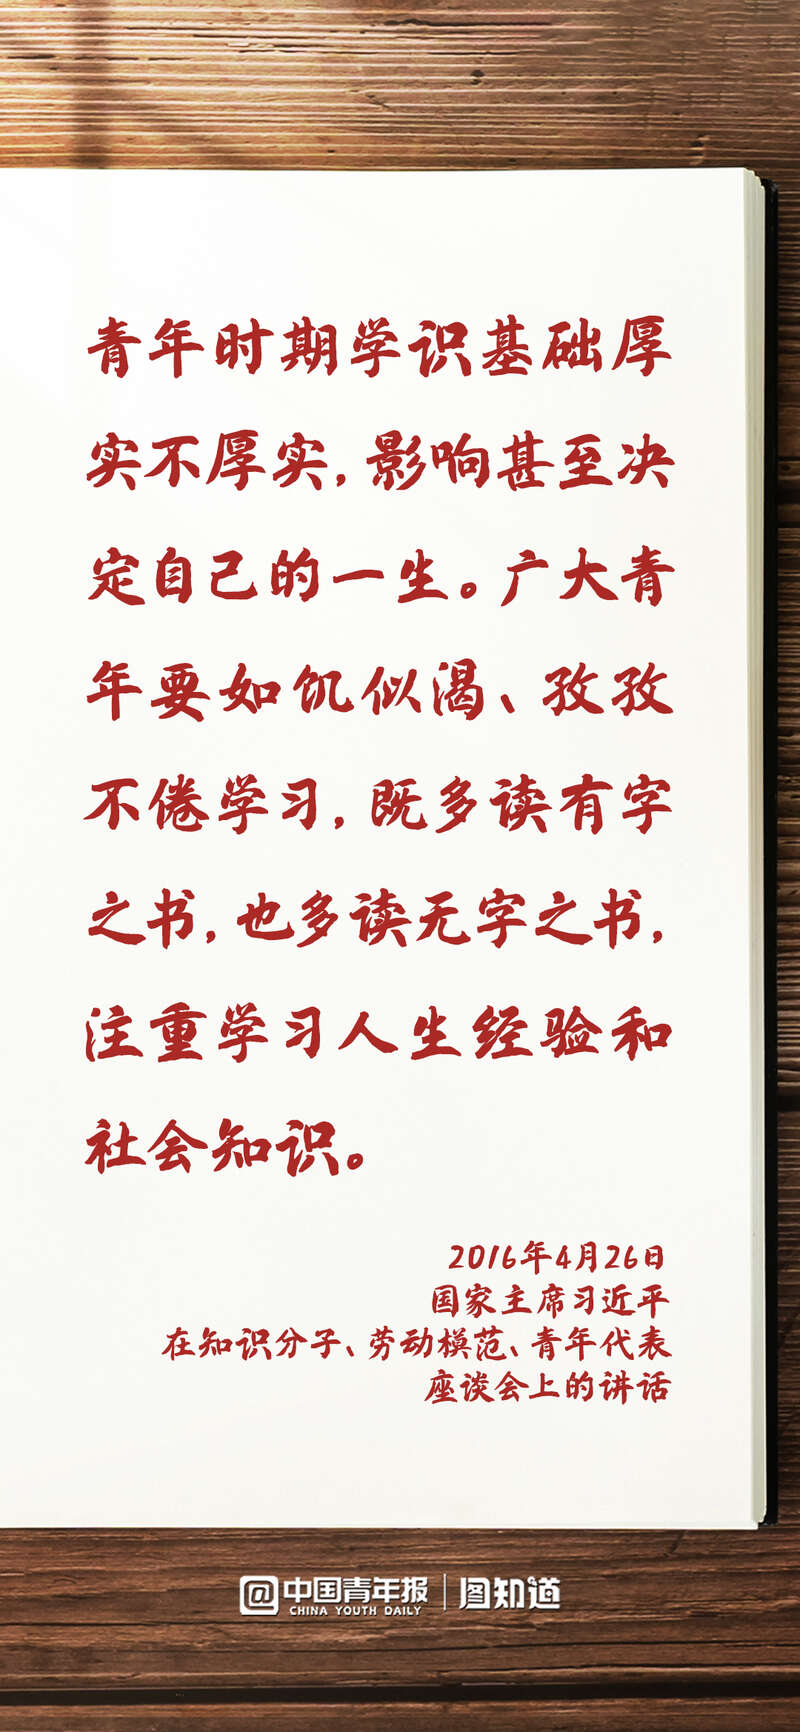 青年时期学识基础厚
实不厚实，影响甚至决
定自己的一生。广大青
年要如饥似渴、孜孜
不倦学习，既多读有字
之书，也多读无字之书，
注重学习人生经验和
社会知识。
2016年4月26日
国家主席习近平
在知识分子、劳动模范、青年代表
座谈会上的讲话
@中国青年报 | 图知道
CHINA YOUTH DAILY